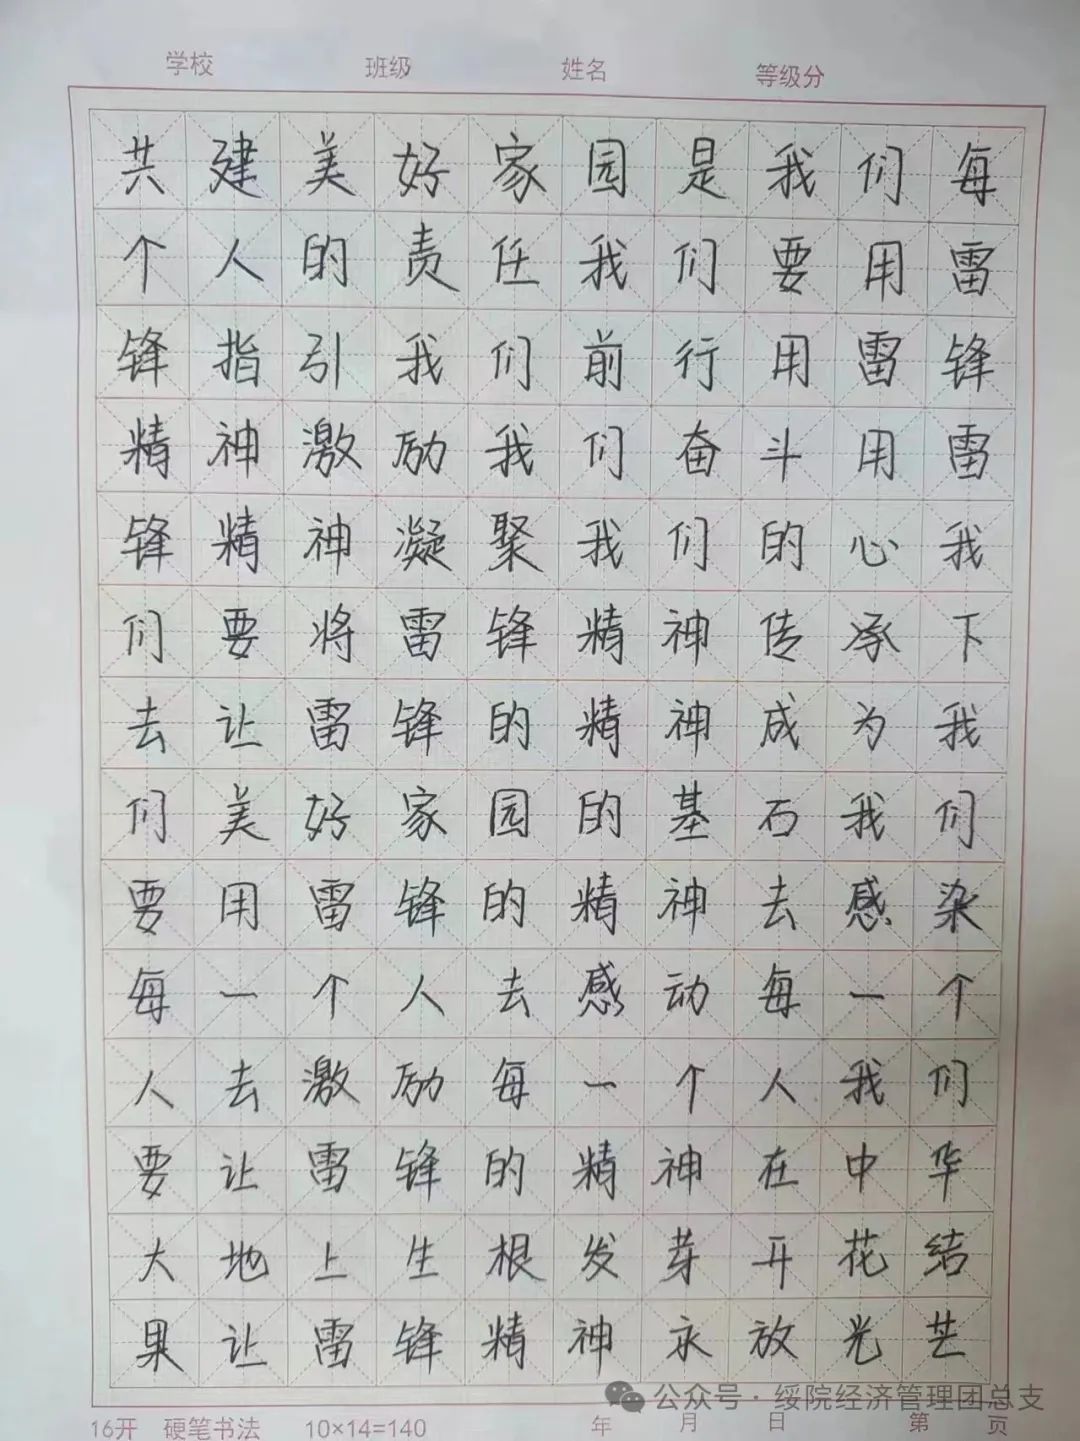 学校 班级 姓名 等级分
共建美好家园是我们每
个人的责任我们要用雷
锋指引我们前行用雷锋
精神激励我们奋斗用雷
锋精神凝聚我们的心我
们要将雷锋精神传承下
去让雷锋的精神成为我
们美好家园的基石我们
要用雷锋的精神去感染
每一个人去感动每一个
人去激励每一个人我们
要让雷锋的精神在中华
大地上生根发芽开花结
果让雷锋精神永放光芒
公众号·绥院经济管理团总支
16开 硬笔书法 10×14=140 年 月 日 第 页